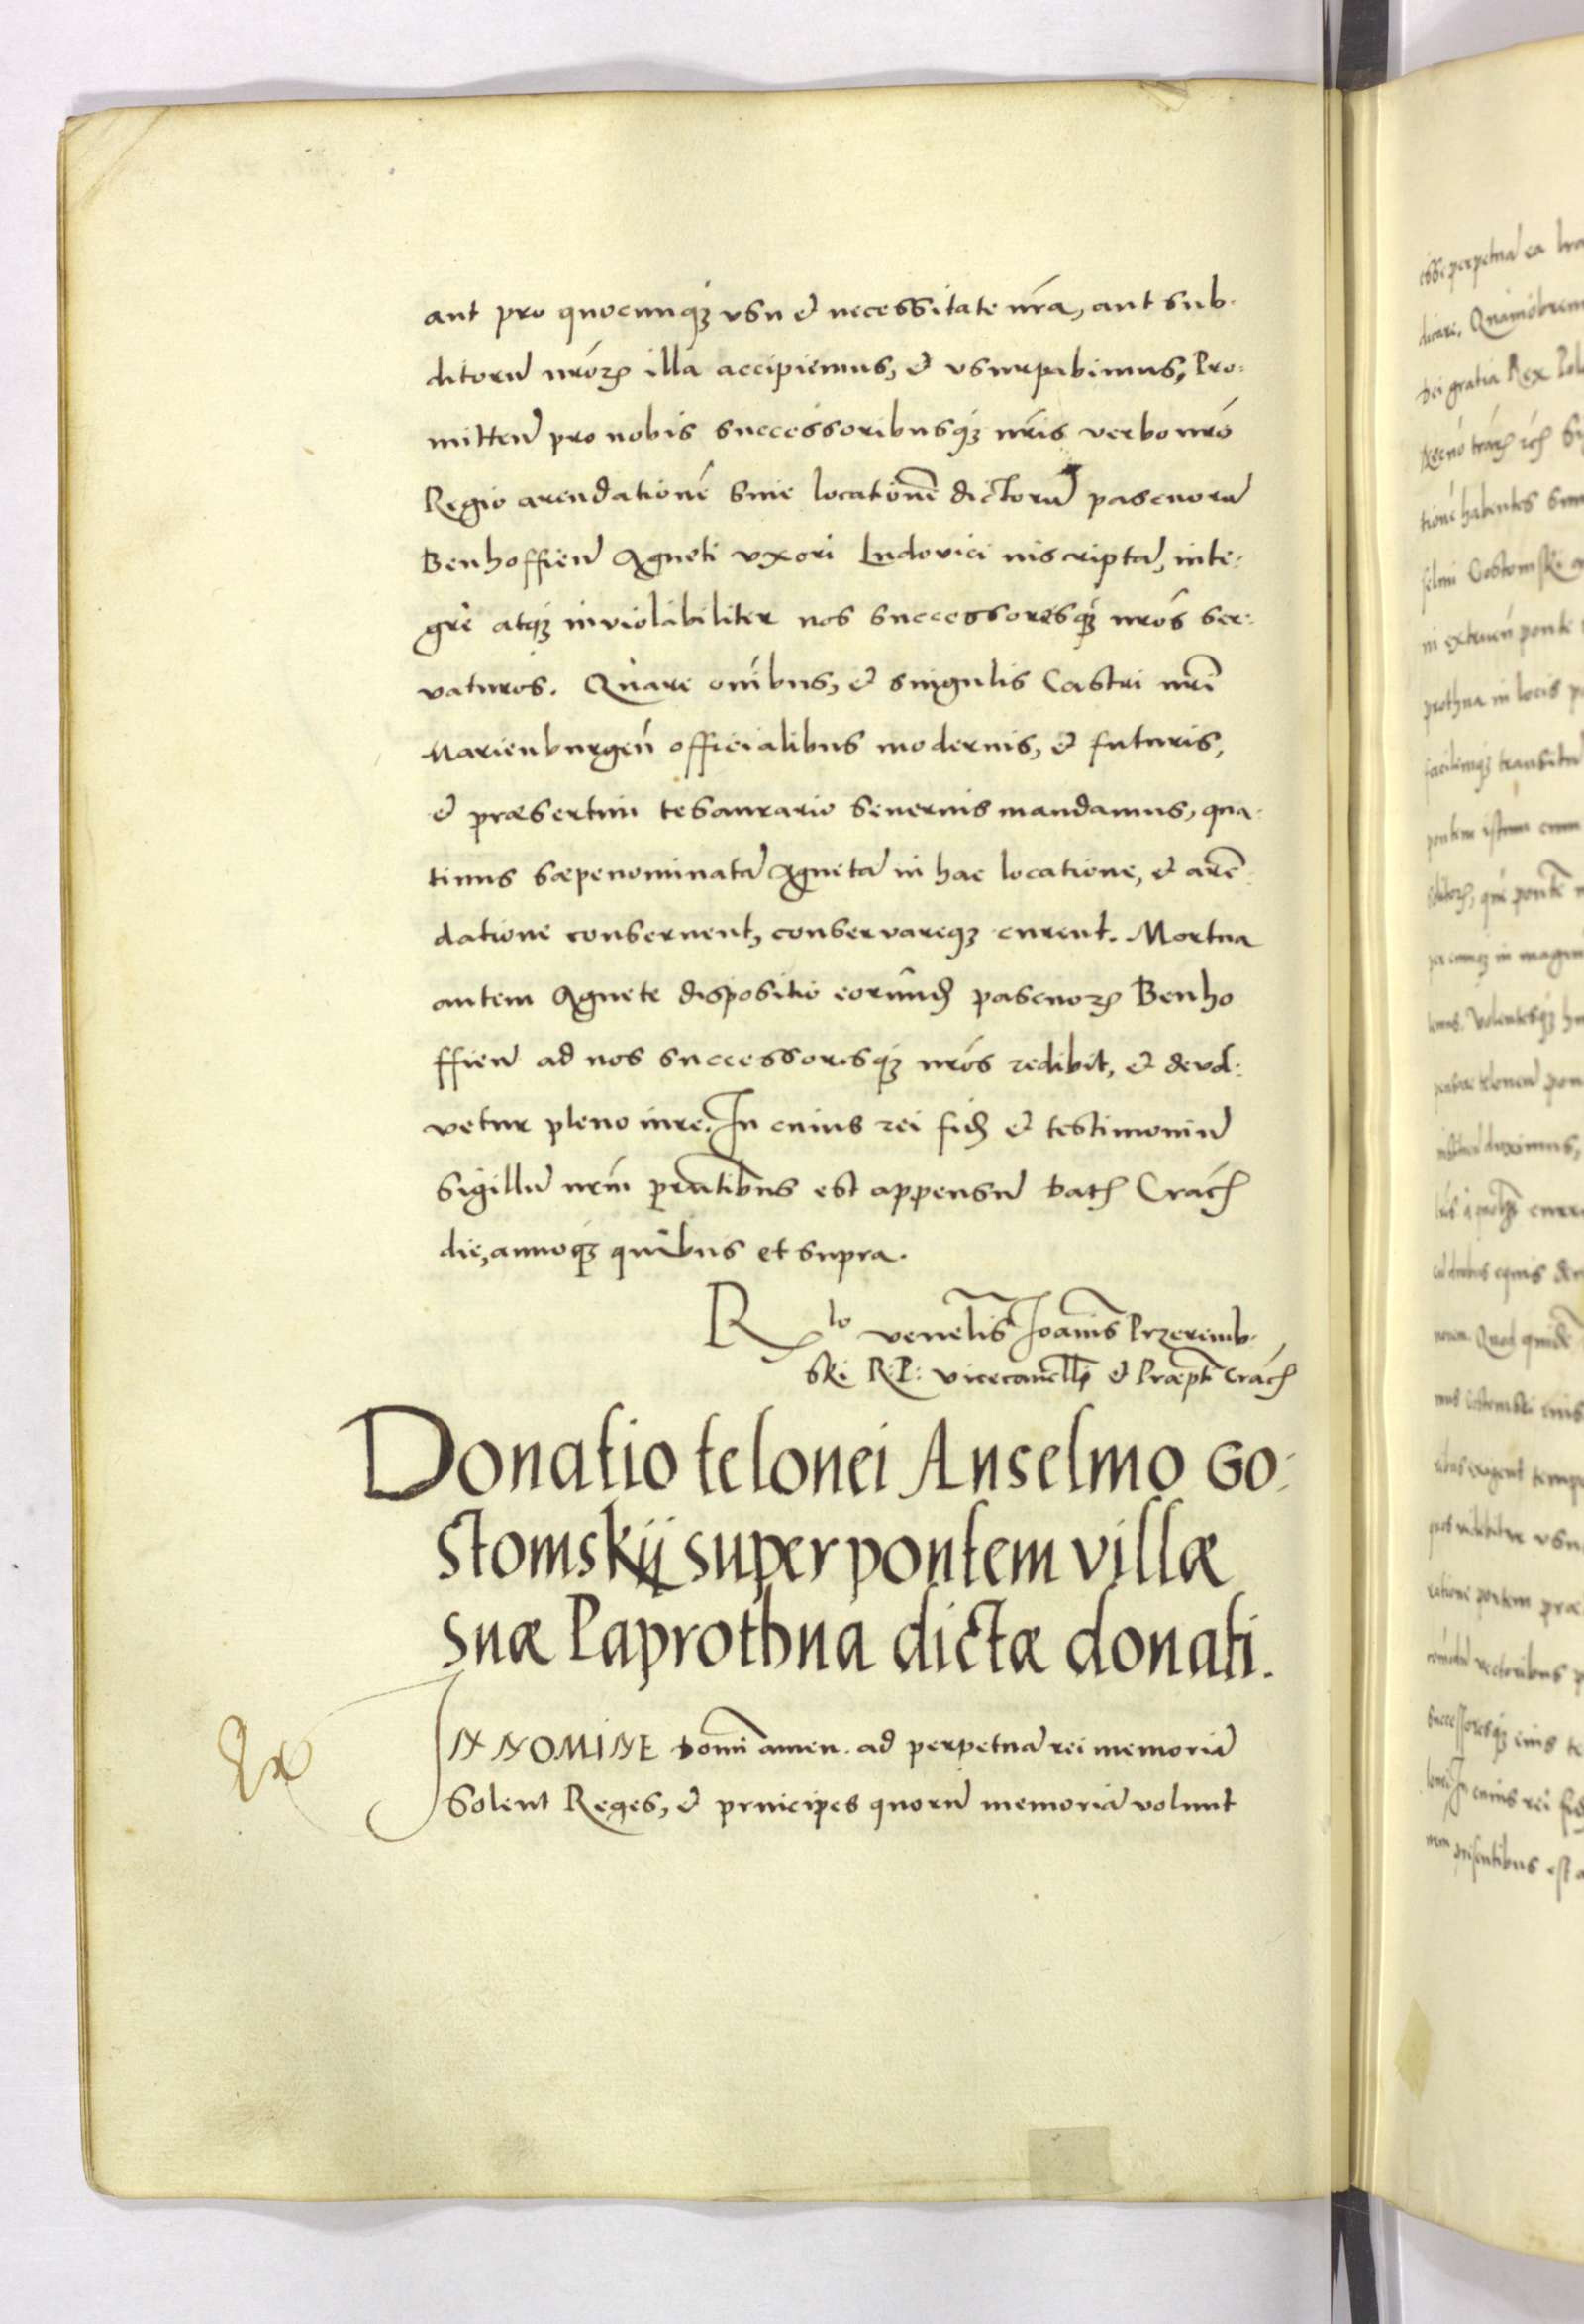 aut pro quocunq₃ vsu et necessitate nr̃a, aut sub-
ditorũ nr̃oꝝ illa accipiemus, et vsurpabimus, Pro-
mitteñ pro nobis successoribusq₃ nr̃is verbo nr̃o
Regio arendationẽ siue locationẽ dictorũ pascuorũ
Benhoffieñ Agneti vxori Ludovici inscriptã, inte-
grè atq₃ inviolabiliter nos successoresq₃ nr̃os ser-
vaturos. Quare om̃ibus, et singulis Castri nr̃i
Marienburgeñ officialibus modernis, et futuris,
et præsertim tesaurario seuerius mandamus, qua-
tinus sæpenominatã Agnetã in hac locatione, et arẽ-
datione conseruent, conservareq₃ curent. Mortua
autem Agnete dispositio eorundẽ pascuoꝝ Benho
ffieñ ad nos successoresq₃ nr̃os redibit, et devol-
vetur pleno iure. In cuius rei fidẽ et testimoniũ
Sigillũ nr̃m pr̃ntibus est appensũ Datꝭ Cracꝭ
die, annoq₃ quibus et supra.
R̃lo venelis Ioannis Przeremb-
ski R: P: vicecancellꝭ et Præptꝭ Cracꝭ
Donatio telonei Anselmo Go-
stomskij super pontem villæ
suæ Paprothna dictæ donati.
IN NOMINE Domĩ amen. ad perpetuã rei memoriã
Solent Reges, et principes quorũ memoriã volunt